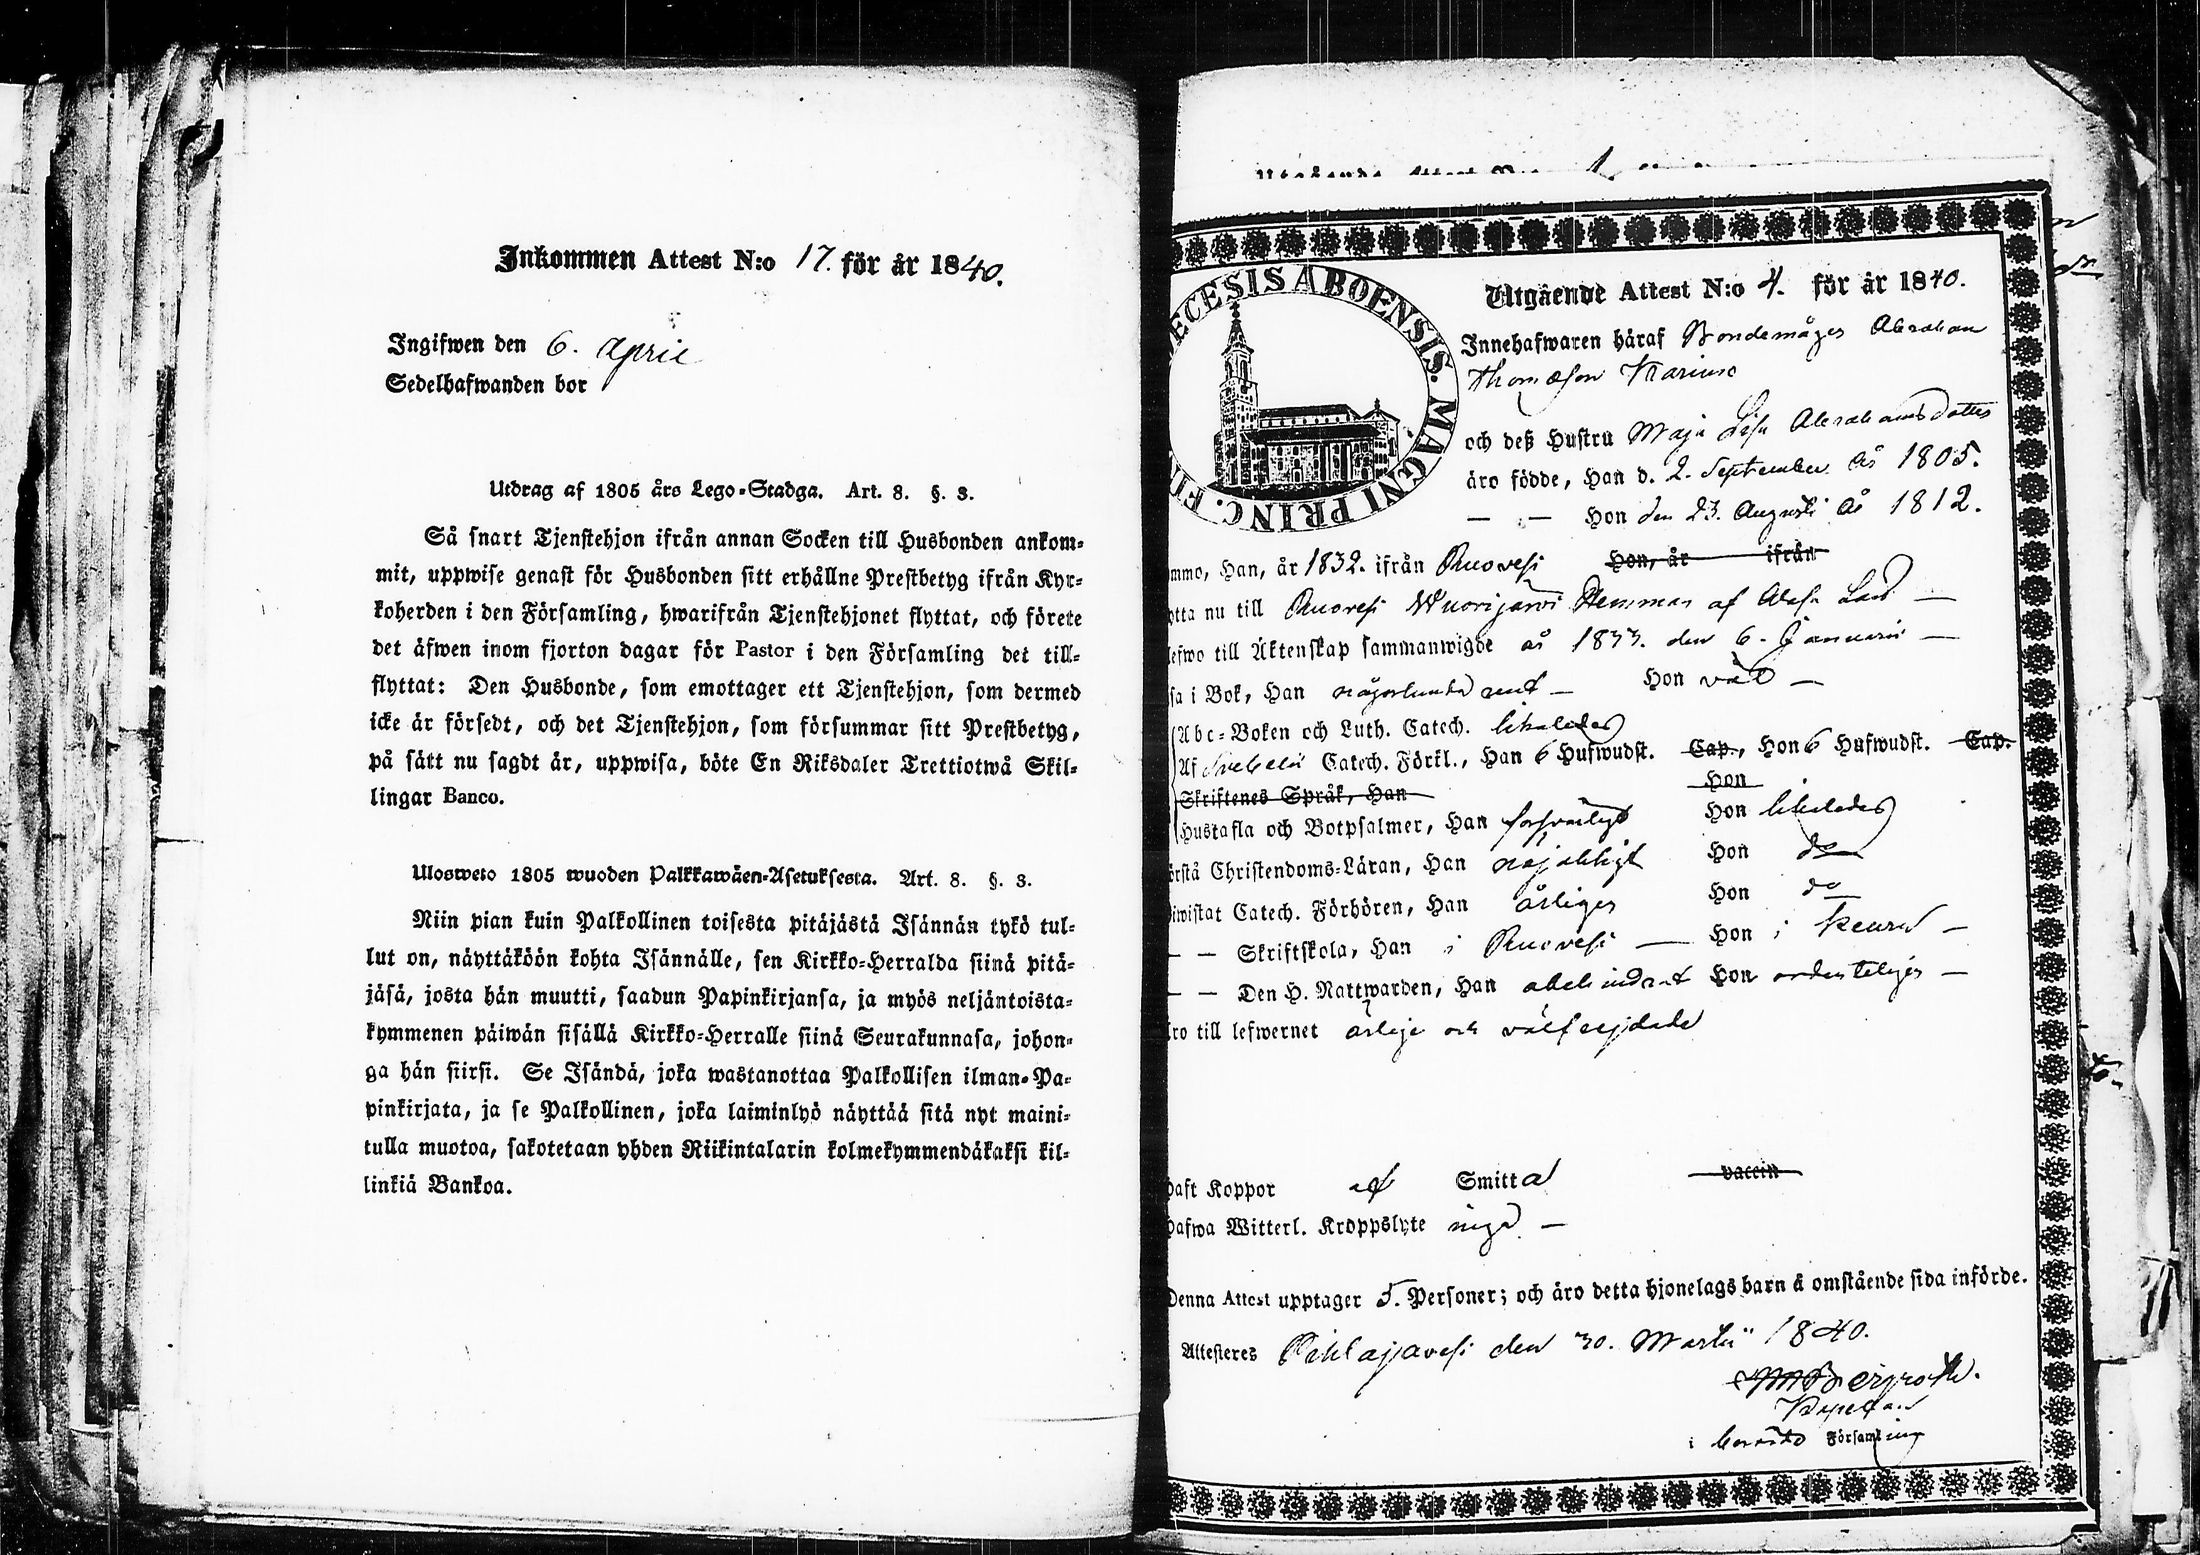 Inkommen Attest N:o 17. för år 1840.
Ingifwen den 6. April
Sedelhafwanden bor
Utdrag af 1805 års Lego-Stadga. Art. 8. §. 3.
Så snart Tjenstehjon ifrån annan Socken till Husbonden ankom-
mit, uppwise genast för Husbonden sitt erhållne Prestbetyg ifrån Kyr-
koherden i den Församling, hwarifrån Tjenstehjonet flyttat, och förete
det äfwen inom fjorton dagar för Pastor i den Församling det till-
flyttat: Den Husbonde, som emottager ett Tjenstehjon, som dermed
icke är försedt, och det Tjenstehjon, som försummar sitt Prestbetyg,
på sätt nu sagdt är, uppwisa, böte En Riksdaler Trettiotwå Skil-
lingar Banco.
Ulosweto 1805 wuoden Palkkawäen-Asetuksesta. Art. 8. §. 3.
Niin pian kuin Palkollinen toisesta pitäjästä Isännän tykö tul-
lut on, näyttäköön kohta Isännälle, sen Kirkko-Herralda siinä pitä-
jäsä, josta hän muutti, saadun Papinkirjansa, ja myös neljäntoista-
kymmenen päiwän sisällä Kirkko-Herralle siinä Seurakunnasa, johon-
ga hän siirsi. Se Isändä, joka wastanottaa Palkollisen ilman-Pa-
pinkirjata, ja se Palkollinen, joka laiminlyö näyttää sitä nyt maini-
tulla muotoa, sakotetaan yhden Riikintalarin kolmekymmendäkaksi kil-
linkiä Bankoa.
ECESIS ABOENSIS. MAGNI PRINC. FI
Utgående Attest N:o 4. för år 1840.
Innehafwaren häraf Bondemåger Abraham
Thomasson
och deß Hustru Maja Lisa Abrahamsdotter
äro födde, Han d. 2. September år 1805.
— — Hon den 23. Augusti år 1812.
mmo, Han, år 1832. ifrån Ruovesi Hon, år ifrån
tta nu till Ruovesi Wuorijärvi Hemman af Wasa Län —
lefwo till Äktenskap sammanwigde år 1833. den 6. Januarii —
sa i Bok, Han någorlunda rent — Hon väl —
Abc-Boken och Luth. Catech. likaledes
Af Svebelii Catech. Förkl., Han 6 Hufwudst. Cap., Hon 6 Hufwudst. Cap.
Skriftenes Språk, Han Hon
Hustafla och Botpsalmer, Han försvarligt Hon likaledes
örstå Christendoms-Läran, Han nöjaktigt Hon do
iwistat Catech. Förhören, Han årligen Hon do
— — Skriftskola, Han i Ruovesi — Hon i Keuru —
— — Den H. Nattwarden, Han obehindrat Hon ordenteligen —
äro till lefwernet ärlige och välfrejdade
haft Koppor af Smitta vaccin
hafwa Witterl. Kroppslyte inga —
Denna Attest upptager 5. Personer; och äro detta hjonelags barn å omstående sida införde.
Attesteres Pihlajavesi den 30. Martii 1840.
Bergroth.
Kapellan
i berörde Församling